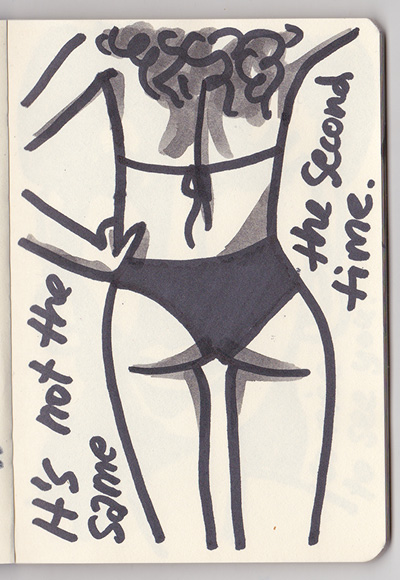 It's not the
same
the second
time.